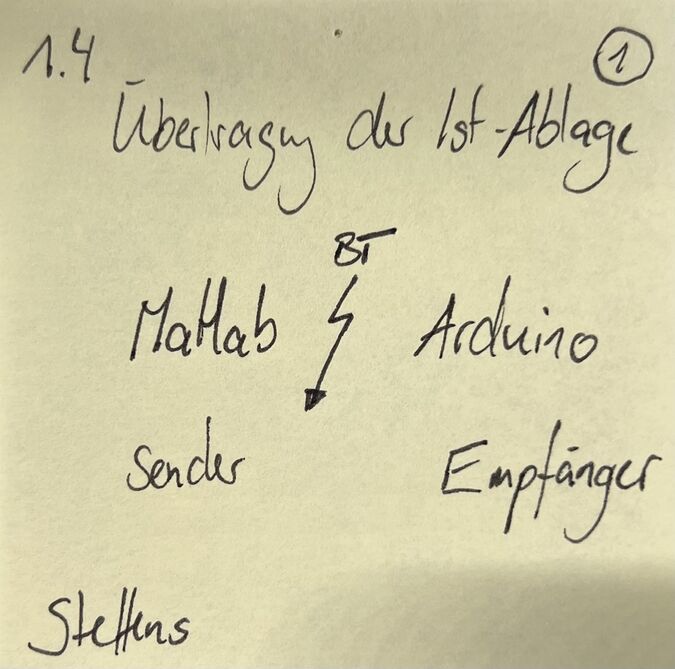 1.4 1
Übertragung der Ist-Ablage
BT
Matlab Arduino
Sender Empfänger
Steffens